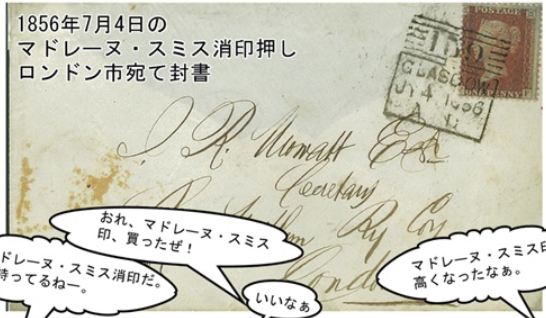 1856年7月4日の
マドレーヌ・スミス消印押し
ロンドン市宛て封書
POSTAGE
159
GLASGOW
JY 4 1856
ONE PENNY
Esq
Secretary
Ry Coy
London
おれ、マドレーヌ・スミス
印、買ったぜ！
ドレーヌ・スミス消印だ。
持ってるねー。
いいなぁ
マドレーヌ・スミス印
高くなったなぁ。